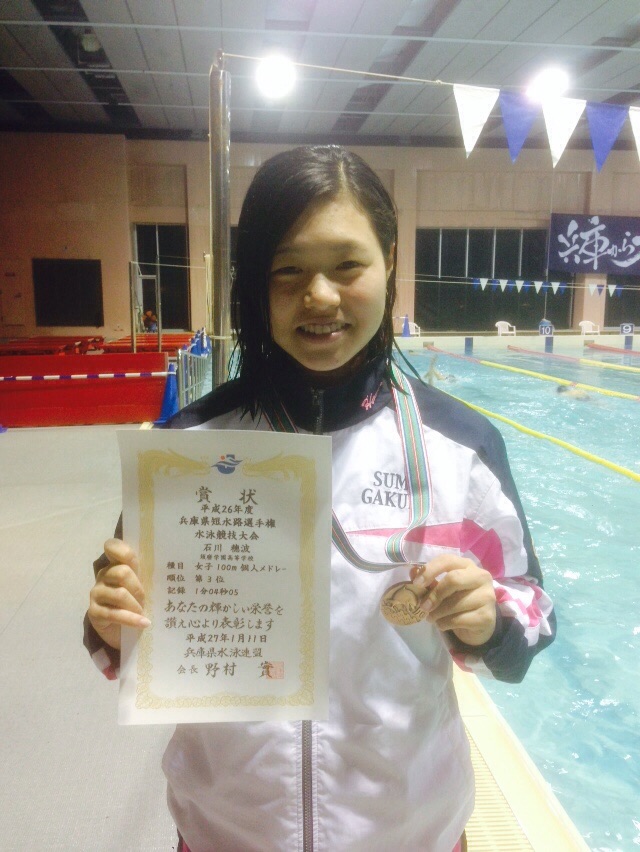 賞状
平成26年度
兵庫県短水路選手権
水泳競技大会
石川 穂波
須磨学園高等学校
種目 女子 100m 個人メドレー
順位 第3位
記録 1分04秒05
あなたの輝かしい栄誉を
讃え心より表彰します
平成27年1月11日
兵庫県水泳連盟
会長 野村
SUM
GAKU
兵庫から
10
9